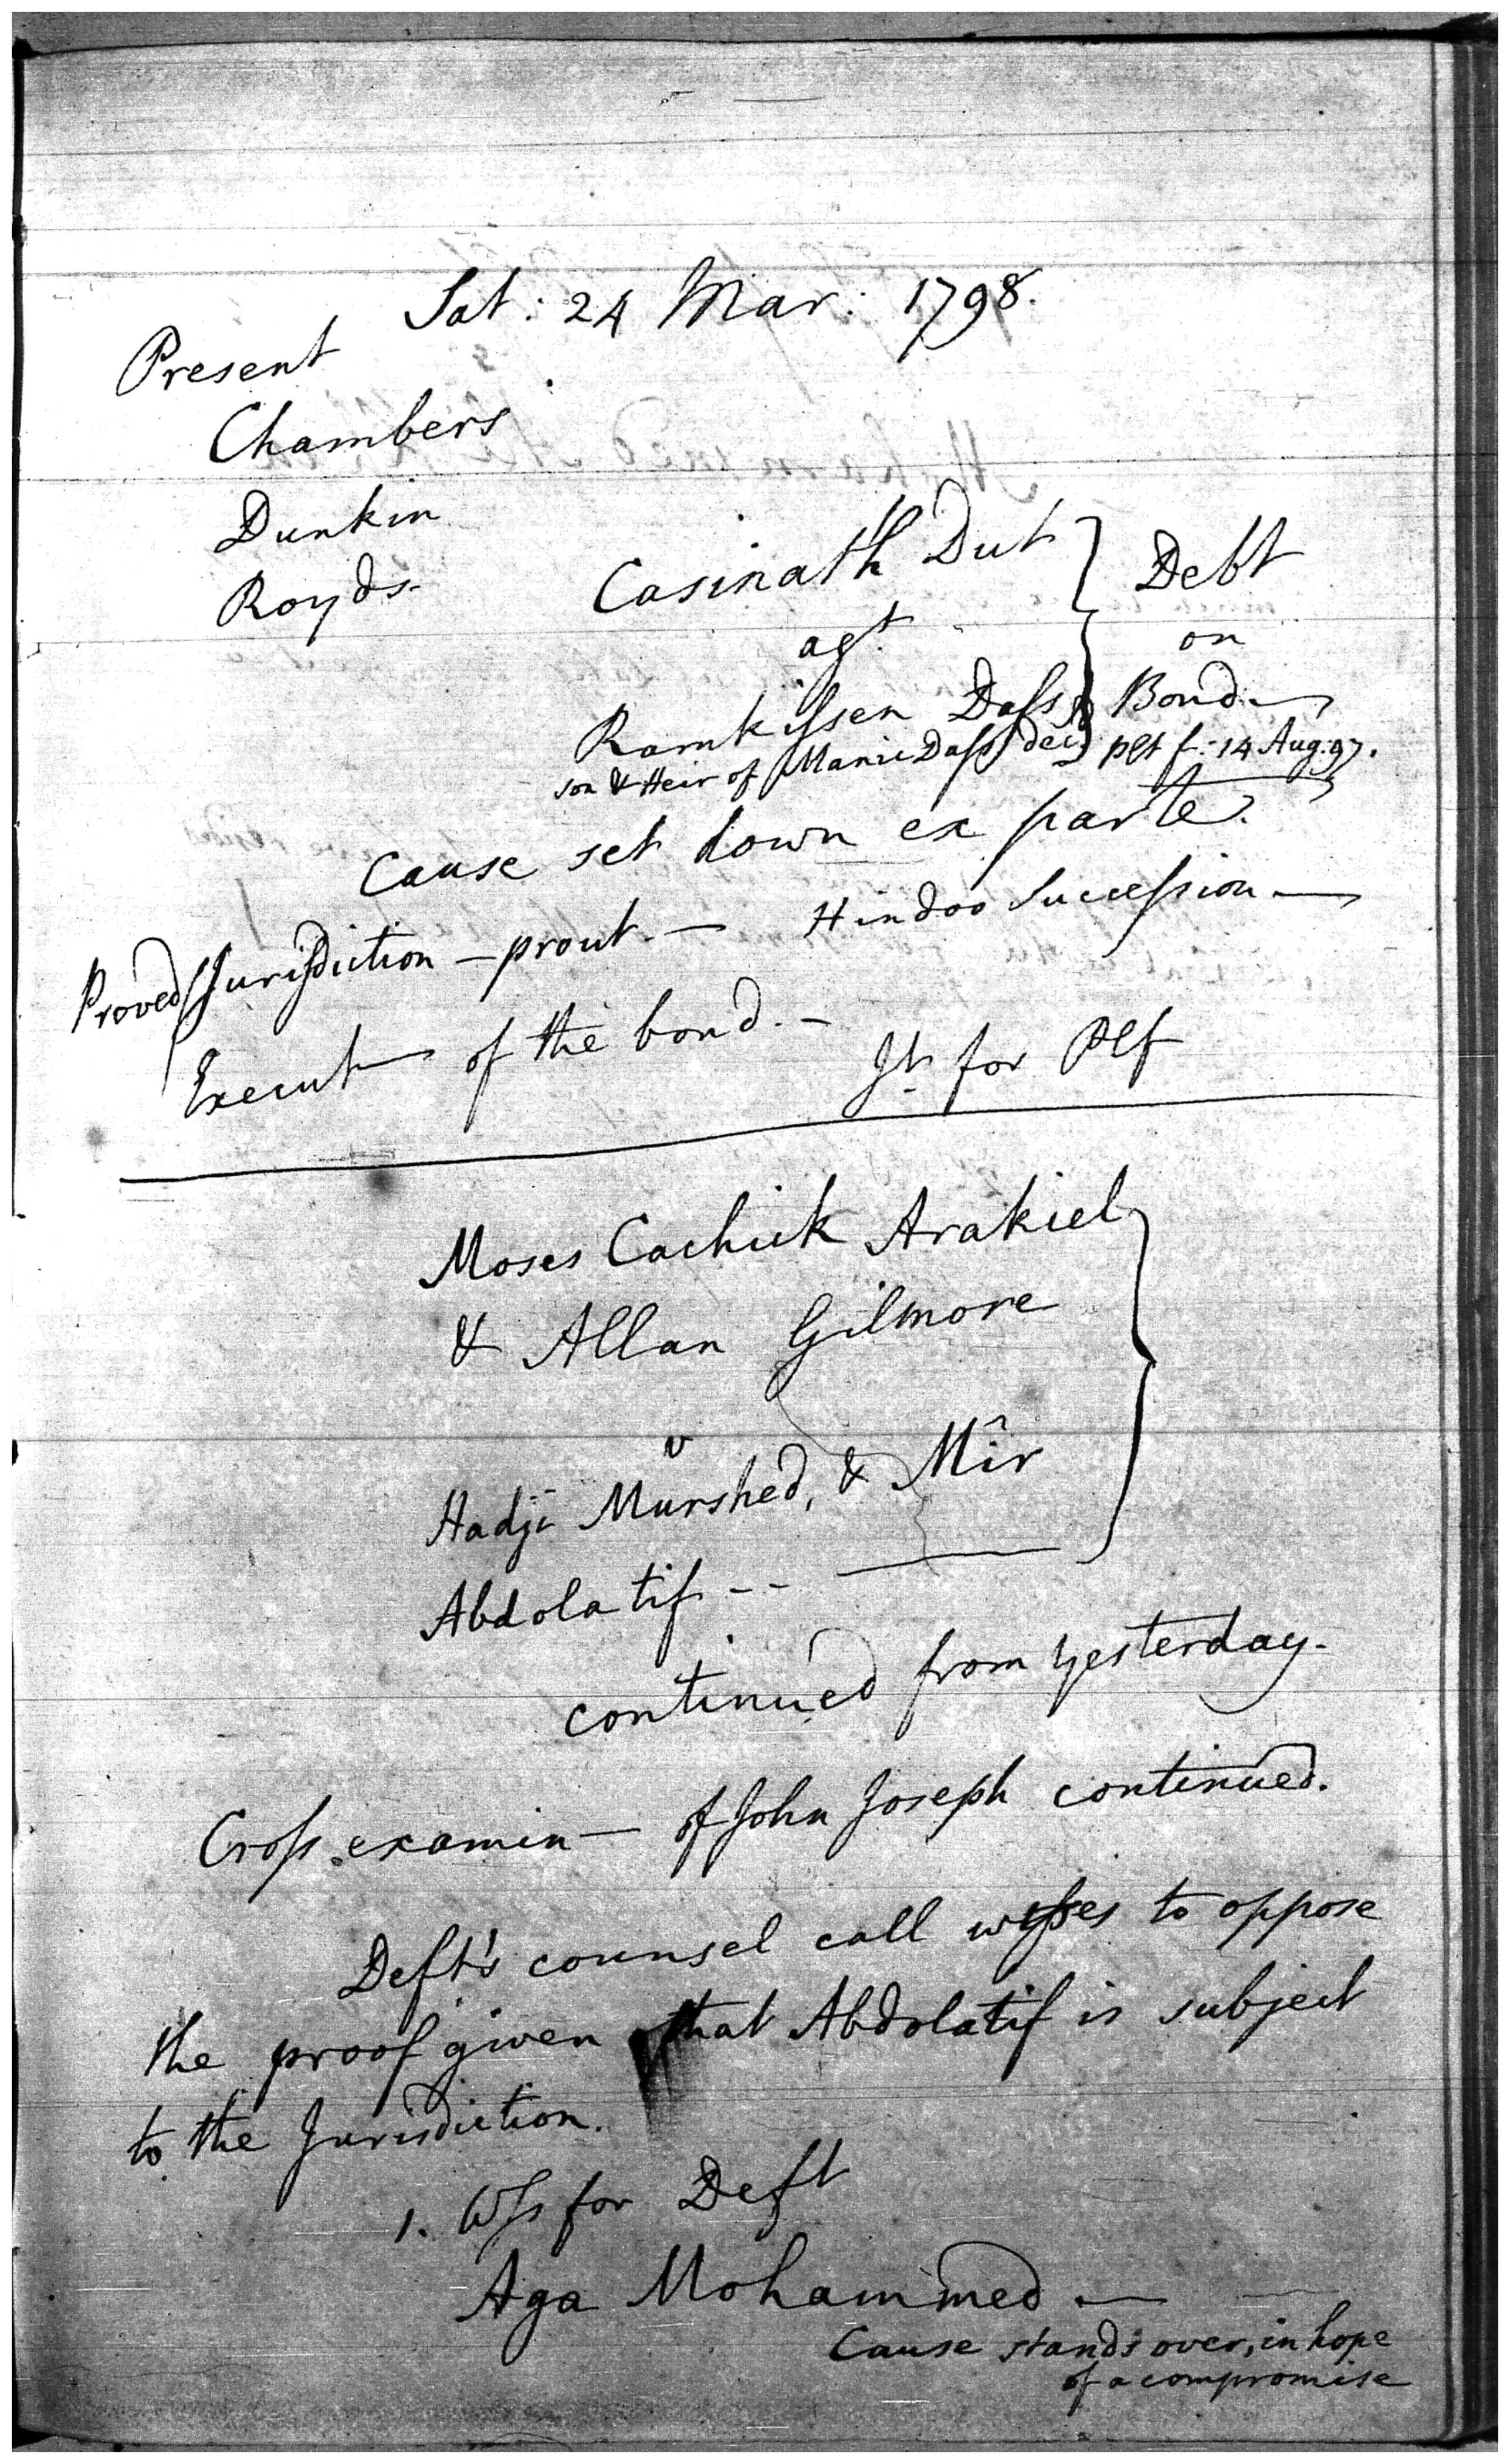 Sat: 24 Mar: 1798.
Present
Chambers
Dunkin
Royds.
Casinath Dut } Debt
agt. on
Ramkissen Dass } Bond.—
son & Heir of Manic Dass decd plt f: 14 Aug. 97.
Cause set down ex parte.
Proved Jurisdiction — prout. — Hindoo Succession —
Execut— of the bond. —
Jt. for Plf
Moses Cachick Arakiel
& Allan Gilmore
v
Hadji Murshed, & Mîr
Abdolatif -- —
continued from yesterday.
Cross. examin— of John Joseph continued.
Deft's counsel call wsses to oppose
the proof given that Abdolatif is subject
to the Jurisdiction.
1. Wss for Deft
Aga Mohammed —
Cause stands over, in hope
of a compromise